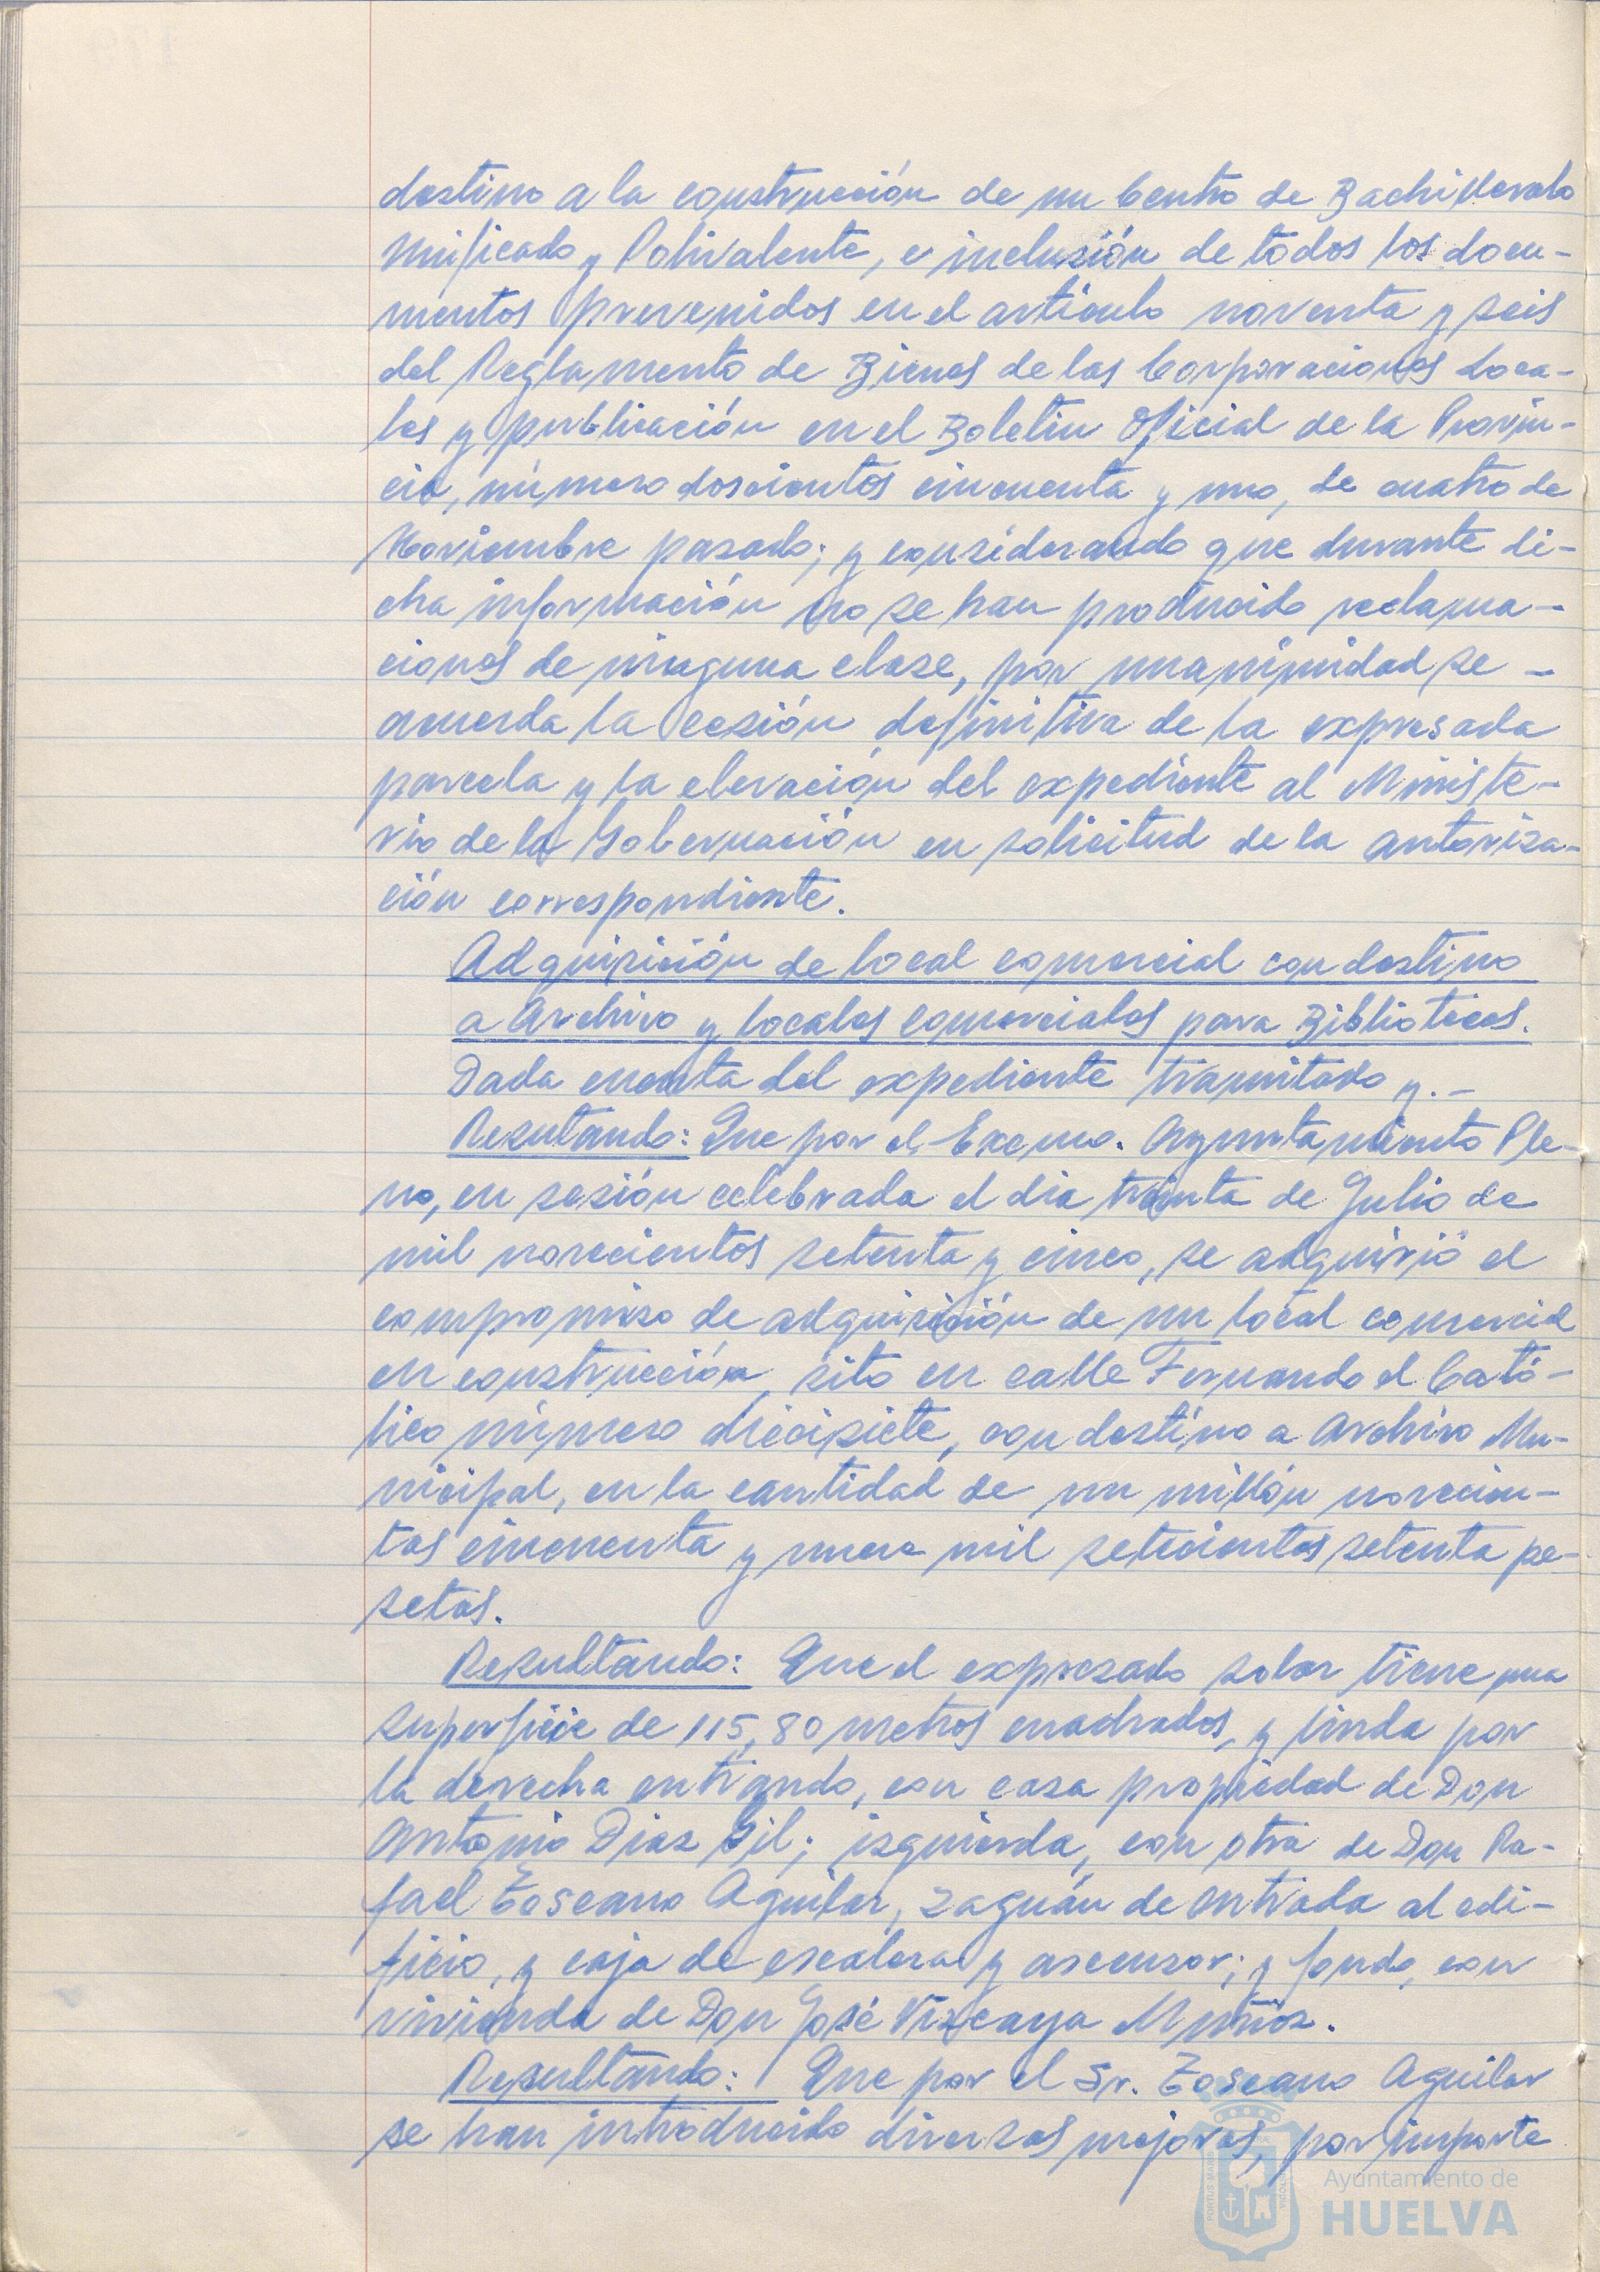 destino a la construcción de un Centro de Bachillerato
Unificado y Polivalente, e inclusión de todos los docu-
mentos prevenidos en el artículo noventa y seis
del Reglamento de Bienes de las Corporaciones Loca-
les y publicación en el Boletin Oficial de la Provin-
cia, número doscientos cincuenta y uno, de cuatro de
Noviembre pasado; y considerando que durante di-
cha información no se han producido reclama-
ciones de ninguna clase, por unanimidad se -
acuerda la cesión definitiva de la expresada
parcela y la elevación del expediente al Ministe-
rio de la Gobernación en solicitud de la autoriza-
ción correspondiente.
Adquisición de local comercial con destino
a Archivo y locales comerciales para Bibliotecas.
Dada cuenta del expediente tramitado y.-
Resultando: Que por el Excmo. Ayuntamiento Ple-
no, en sesión celebrada el dia treinta de Julio de
mil novecientos setenta y cinco, se adquirió el
compromiso de adquisición de un local comercial
en construcción, sito en calle Fernando el Cató-
lico número diecisiete, con destino a Archivo Mu-
nicipal, en la cantidad de un millón novecien-
tas cincuenta y nueve mil setecientas setenta pe-
setas.
Resultando: Que el expresado solar tiene una
superficie de 115,80 metros cuadrados, y linda por
la derecha entrando, con casa propiedad de Don
Antonio Diaz Gil; izquierda, con otra de Don Ra-
fael Toscano Aguilar, zaguán de entrada al edi-
ficio, y caja de escalera y ascensor; y fondo, con
vivienda de Don José Vizcaya Muñoz.
Resultando: Que por el Sr. Toscano Aguilar
se han introducido diversas mejoras, por importe
Ayuntamiento de
HUELVA